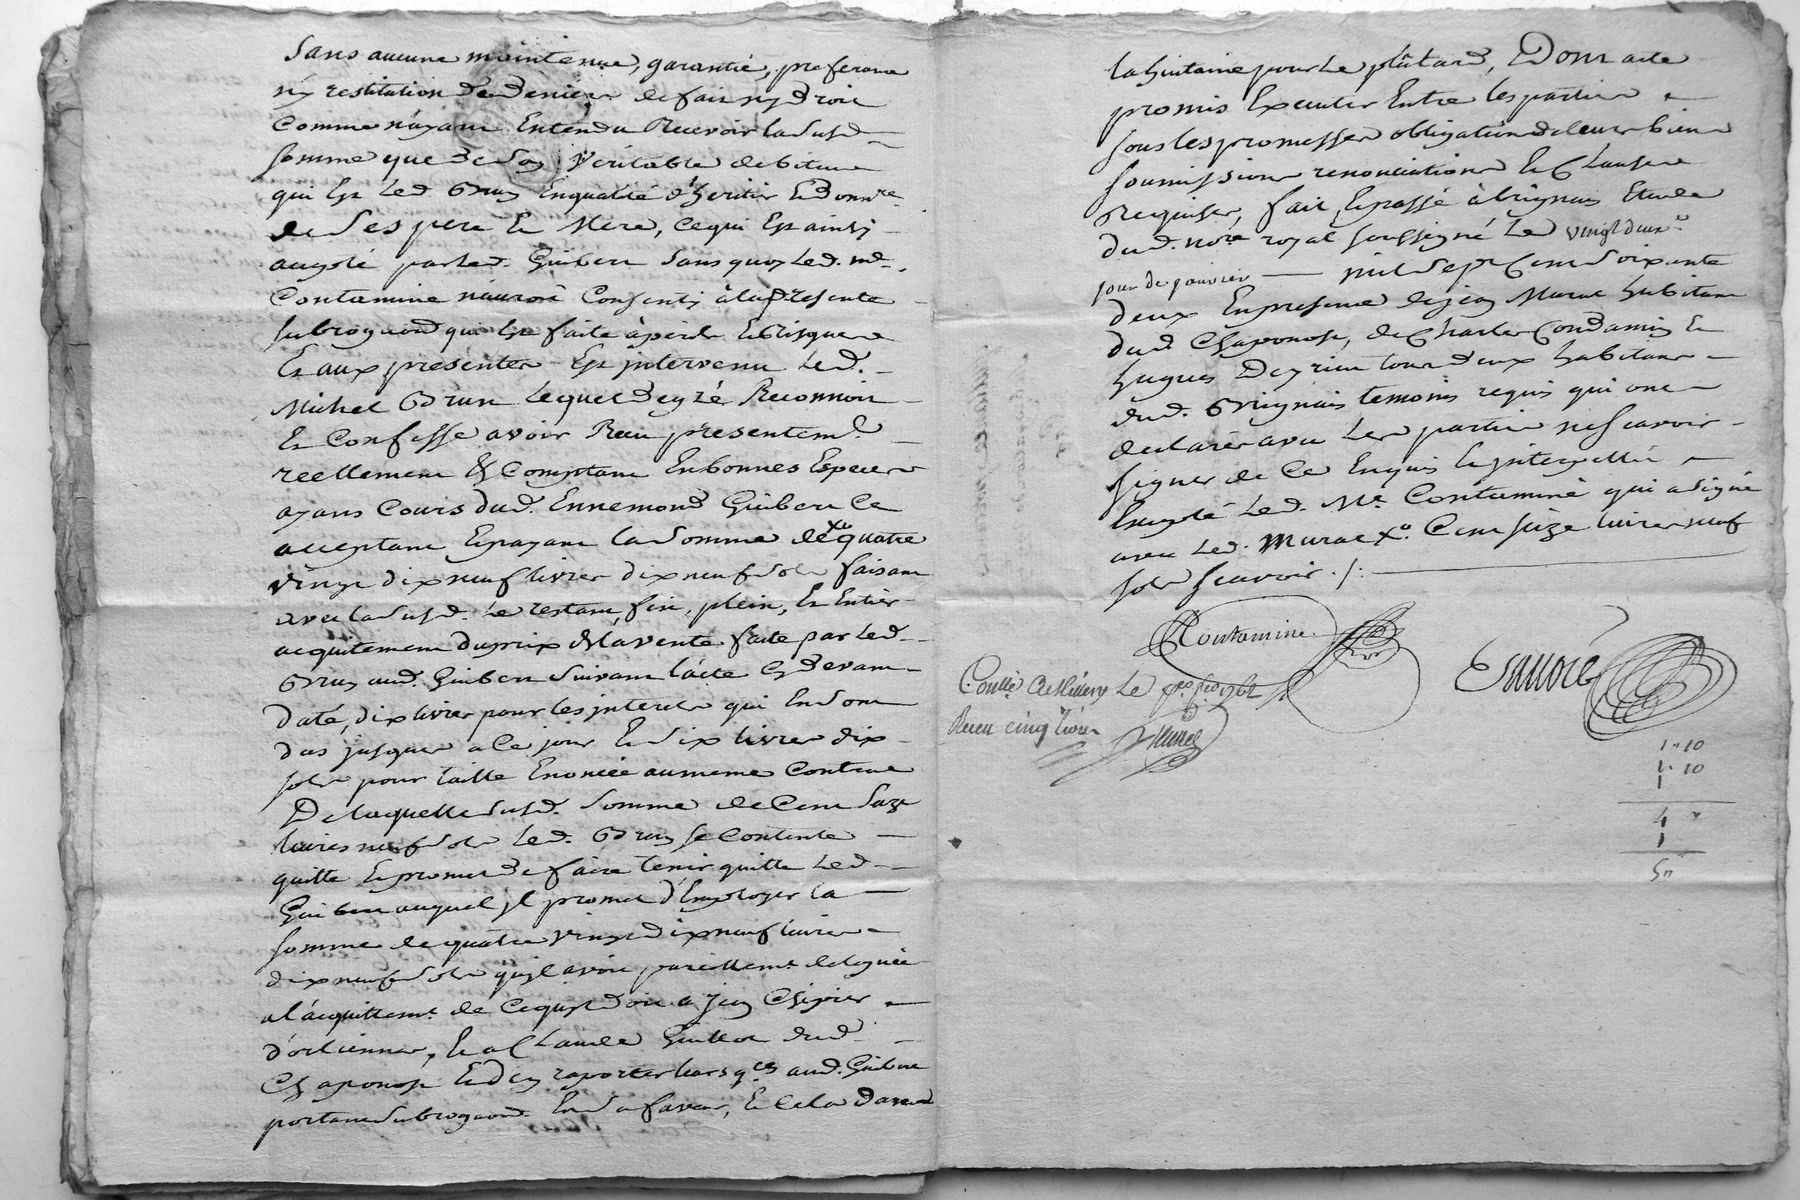 sans aucune maintenue, garantie, preferance
ny restitution de deniers de fait ny droit
comme n'ayant entendu recevoir la susd
somme que de son veritable debiteur
qui est led. Brun en qualité d'heritier E donnre
de ses pere et mere, ce qui est ainsy
accepté par led. Guibert sans quoy led. me.
Contamine n'auroit consenty à la presente
subrogaon qui est faite à perils et risques
Et aux presentes est intervenu led.
Michel Brun lequel de gré Reconnoit
et confesse avoir Reçu presentemt
reellement & comptant en bonnes especes
ayans cours dud. Ennemond Guibert ce
acceptant et payant la somme de xo quatre
vingt dix neuf livres dix neuf sols faisant
avec la susd. le restant, fin, plein, et entier
acquitement du prix de la vente faite par led.
Brun aud. Guibert suivant l'acte cy devant
daté, dix livres pour les interets qui en sont
dus jusques a ce jour et six livres dix
sols pour taille enoncée au meme contract
De laquelle susd. somme de cent saize
livres neuf sols led. Brun se contente
quitte et promet de faire tenir quitte led.
Guibert auquel jl promet d'employer la
somme de quatre vingt dix neuf livres
dix neuf sols qu'jl avoit pareillemt deleguée
a l'acquittemt de ce qu'jl doit a jean
d'orlienas, et a Claude Guillot dud.
Chaponost et d'en raporter aud. Guibert
portant subrogaon en sa faveur, et cela davant
la huitaine pour le plûtard, Dont acte
promis executer entre les parties
sous les promesses obligations de leurs biens
soumissions renonciations et clauses
requises, fait et passé à brignais etude
dud. nore royal soussigné le vingt deuxe
jour de janvier mil sept cent soixante
deux en presence de jean Murat habitant
dud. Chaponost, de Charles Condamin et
hugues Deyrieu tous deux habitans
dud. Brignais temoins requis qui ont
declarés avec les parties ne scavoir
signer de ce enquis et interpellés
excepté led. Me. Contamine qui a signé
avec led. Murat xo. Cent seize livres neuf
sols scavoir ./:
Contamine
Contlé a le po. feo. 1762
Reçu cinq livres
1 " 10
1 . 10
1
4 "
1
5 "